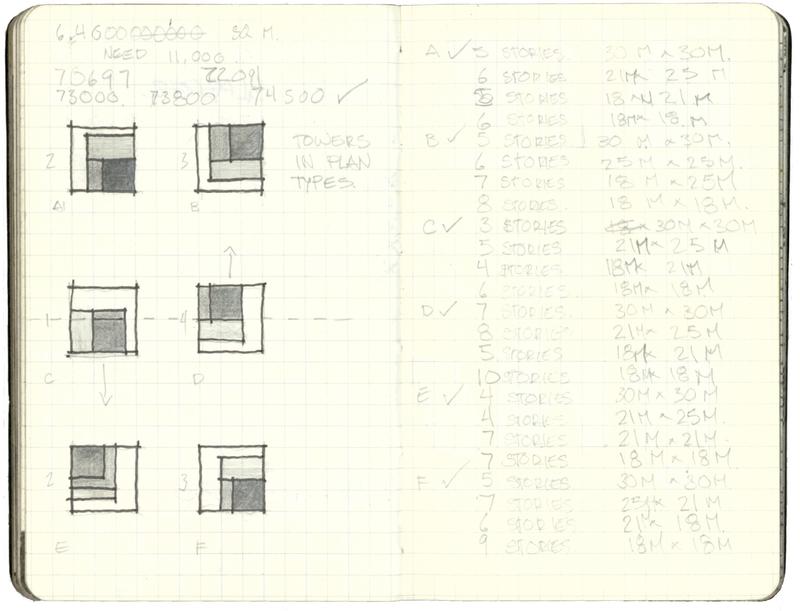 6,4000 SQ M.
NEED 11,000
70697 72091
73000. 73800 74500 ✓
2
3
TOWERS
IN PLAN
TYPES.
A
B
1
4
C
D
2
3
E
F
A ✓ 5 STORIES. 30 M x 30M.
6 STORIES 21M x 25 M
5 STORIES 18 M 21 M
6 STORIES 18M x 18 M
B ✓ 5 STORIES 30 M x 30M.
6 STORIES 25M x 25M.
7 STORIES 18 M x 25M
8 STORIES. 18 M x 18M.
C ✓ 3 STORIES 30M x 30M
5 STORIES 21M x 25 M
4 STORIES 18M x 21M
6 STORIES 18M x 18M
D ✓ 7 STORIES. 30M x 30M
8 STORIES 21M x 25M
5. STORIES 18M x 21 M
10 STORIES 18M x 18M
E ✓ 4 STORIES 30M x 30M
4 STORIES 21M x 25M.
7 STORIES 21M x 21M.
7 STORIES 18M x 18M.
F ✓ 5 STORIES 30M x 30M.
7 STORIES 25M x 21M
6 STORIES 21M x 18M.
9 STORIES. 18M x 18M